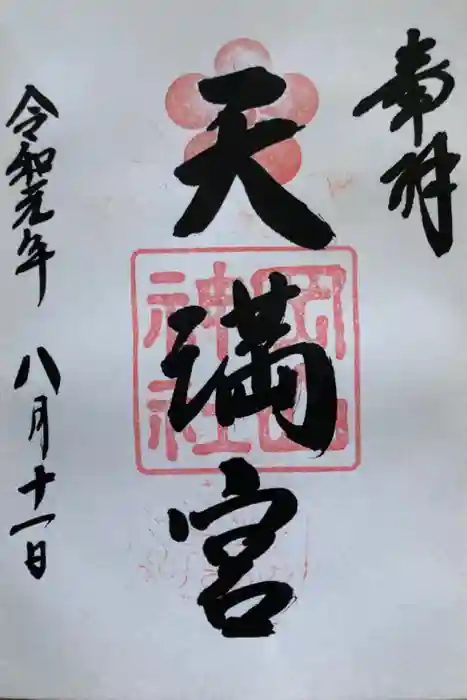 奉拝
天満宮
岡山
神社
令和元年 八月十一日